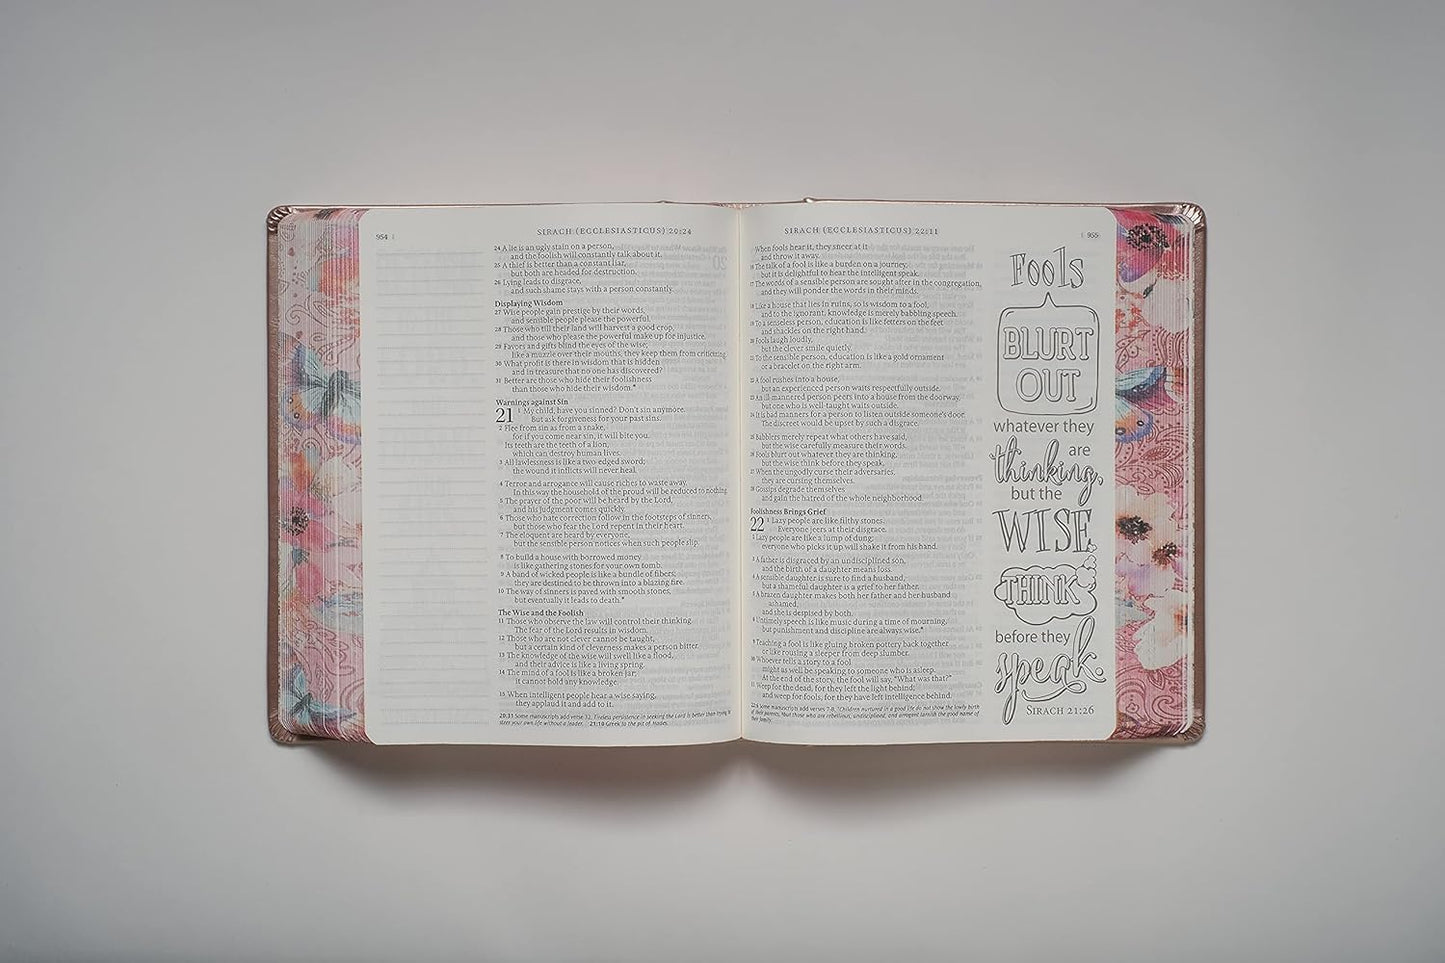 954
SIRACH (ECCLESIASTICUS) 20:24
24 A lie is an ugly stain on a person,
and the foolish will constantly talk about it.
25 A thief is better than a constant liar,
but both are headed for destruction.
26 Lying leads to disgrace,
and such shame stays with a person constantly.
Displaying Wisdom
27 Wise people gain prestige by their words,
and sensible people please the powerful.
28 Those who till their land will harvest a good crop,
and those who please the powerful make up for injustice.
29 Favors and gifts blind the eyes of the wise;
like a muzzle over their mouths, they keep them from criticizing.
30 What profit is there in wisdom that is hidden
and in treasure that no one has discovered?
31 Better are those who hide their foolishness
than those who hide their wisdom.*
Warnings against Sin
21 1 My child, have you sinned? Don't sin anymore.
But ask forgiveness for your past sins.
2 Flee from sin as from a snake,
for if you come near sin, it will bite you.
Its teeth are the teeth of a lion,
which can destroy human lives.
3 All lawlessness is like a two-edged sword;
the wound it inflicts will never heal.
4 Terror and arrogance will cause riches to waste away.
In this way the household of the proud will be reduced to nothing.
5 The prayer of the poor will be heard by the Lord,
and his judgment comes quickly.
6 Those who hate correction follow in the footsteps of sinners,
but those who fear the Lord repent in their heart.
7 The eloquent are heard by everyone,
but the sensible person notices when such people slip.
8 To build a house with borrowed money
is like gathering stones for your own tomb.
9 A band of wicked people is like a bundle of fibers;
they are destined to be thrown into a blazing fire.
10 The way of sinners is paved with smooth stones,
but eventually it leads to death.*
The Wise and the Foolish
11 Those who observe the law will control their thinking.
The fear of the Lord results in wisdom.
12 Those who are not clever cannot be taught,
but a certain kind of cleverness makes a person bitter.
13 The knowledge of the wise will swell like a flood,
and their advice is like a living spring.
14 The mind of a fool is like a broken jar;
it cannot hold any knowledge.
15 When intelligent people hear a wise saying,
they applaud it and add to it.
20:31 Some manuscripts add verse 32, Tireless persistence in seeking the Lord is better than trying to
steer your own life without a leader. 21:10 Greek to the pit of Hades.
SIRACH (ECCLESIASTICUS) 22:11
955
When fools hear it, they sneer at it
and throw it away.
16 The talk of a fool is like a burden on a journey,
but it is delightful to hear the intelligent speak.
17 The words of a sensible person are sought after in the congregation,
and they will ponder the words in their minds.
18 Like a house that lies in ruins, so is wisdom to a fool,
and to the ignorant, knowledge is merely babbling speech.
19 To a senseless person, education is like fetters on the feet
and shackles on the right hand.
20 Fools laugh loudly,
but the clever smile quietly.
21 To the sensible person, education is like a gold ornament
or a bracelet on the right arm.
22 A fool rushes into a house,
but an experienced person waits respectfully outside.
23 An ill-mannered person peers into a house from the doorway,
but one who is well-taught waits outside.
24 It is bad manners for a person to listen outside someone's door.
The discreet would be upset by such a disgrace.
25 Babblers merely repeat what others have said,
but the wise carefully measure their words.
26 Fools blurt out whatever they are thinking,
but the wise think before they speak.
27 When the ungodly curse their adversaries,
they are cursing themselves.
28 Gossips degrade themselves
and gain the hatred of the whole neighborhood.
Foolishness Brings Grief
22 1 Lazy people are like filthy stones.
Everyone jeers at their disgrace.
2 Lazy people are like a lump of dung;
everyone who picks it up will shake it from his hand.
3 A father is disgraced by an undisciplined son,
and the birth of a daughter means loss.
4 A sensible daughter is sure to find a husband,
but a shameful daughter is a grief to her father.
5 A brazen daughter makes both her father and her husband
ashamed,
and she is despised by both.
6 Untimely speech is like music during a time of mourning,
but punishment and discipline are always wise.*
9 Teaching a fool is like gluing broken pottery back together
or like rousing a sleeper from deep slumber.
10 Whoever tells a story to a fool
might as well be speaking to someone who is asleep.
At the end of the story, the fool will say, "What was that?"
11 Weep for the dead, for they left the light behind;
and weep for fools, for they have left intelligence behind.
22:6 Some manuscripts add verses 7-8, "Children nurtured in a good life do not show the lowly birth
of their parents, 8but those who are rebellious, undisciplined, and arrogant tarnish the good name of
their family.
Fools
BLURT
OUT
whatever they
are
thinking,
but the
WISE
THINK
before they
speak.
SIRACH 21:26